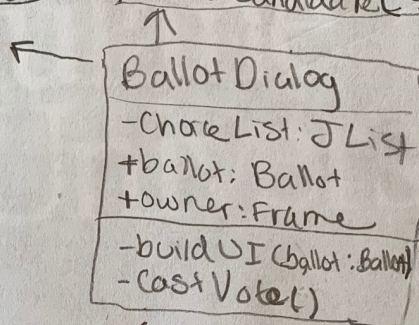 BallotDialog
-ChoiceList: JList
+ballot: Ballot
+owner: Frame
-buildUI(ballot:Ballot)
-CastVote()